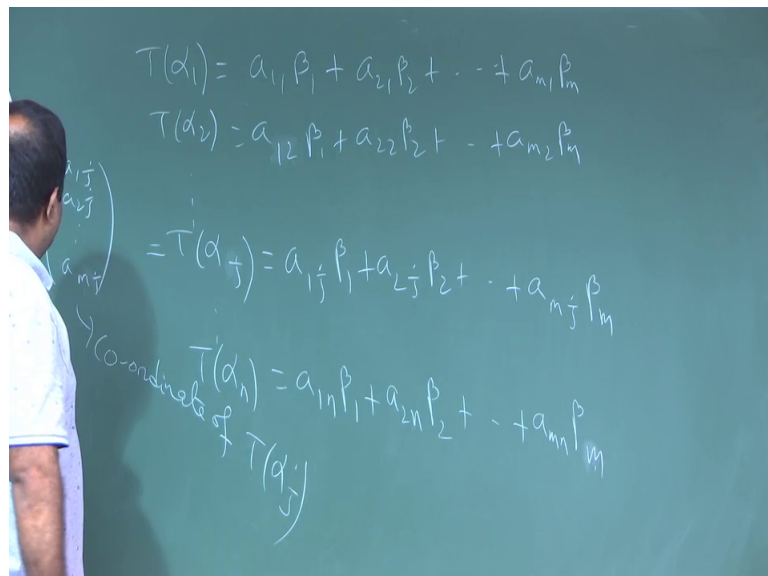 T(α₁) = a₁₁β₁ + a₂₁β₂ + ·· + aₘ₁βₘ
T(α₂) = a₁₂β₁ + a₂₂β₂ + ·· + aₘ₂βₘ
⋮
a₁ⱼ
a₂ⱼ
⋮
aₘⱼ
= T(αⱼ) = a₁ⱼβ₁ + a₂ⱼβ₂ + ·· + aₘⱼβₘ
⋮
T(αₙ) = a₁ₙβ₁ + a₂ₙβ₂ + ·· + aₘₙβₘ
↳ Co-ordinate of T(αⱼ)